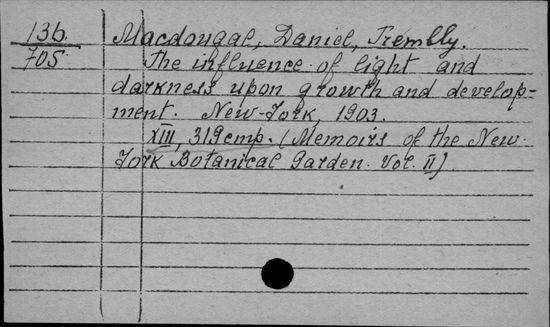 136. Macdougal, Daniel, Trembly.
705 The influence of light and
darkness upon growth and develop-
ment. New-York, 1903.
XIII, 319 cmp. (Memoirs of the New-
York Botanical Garden. Vol. II).